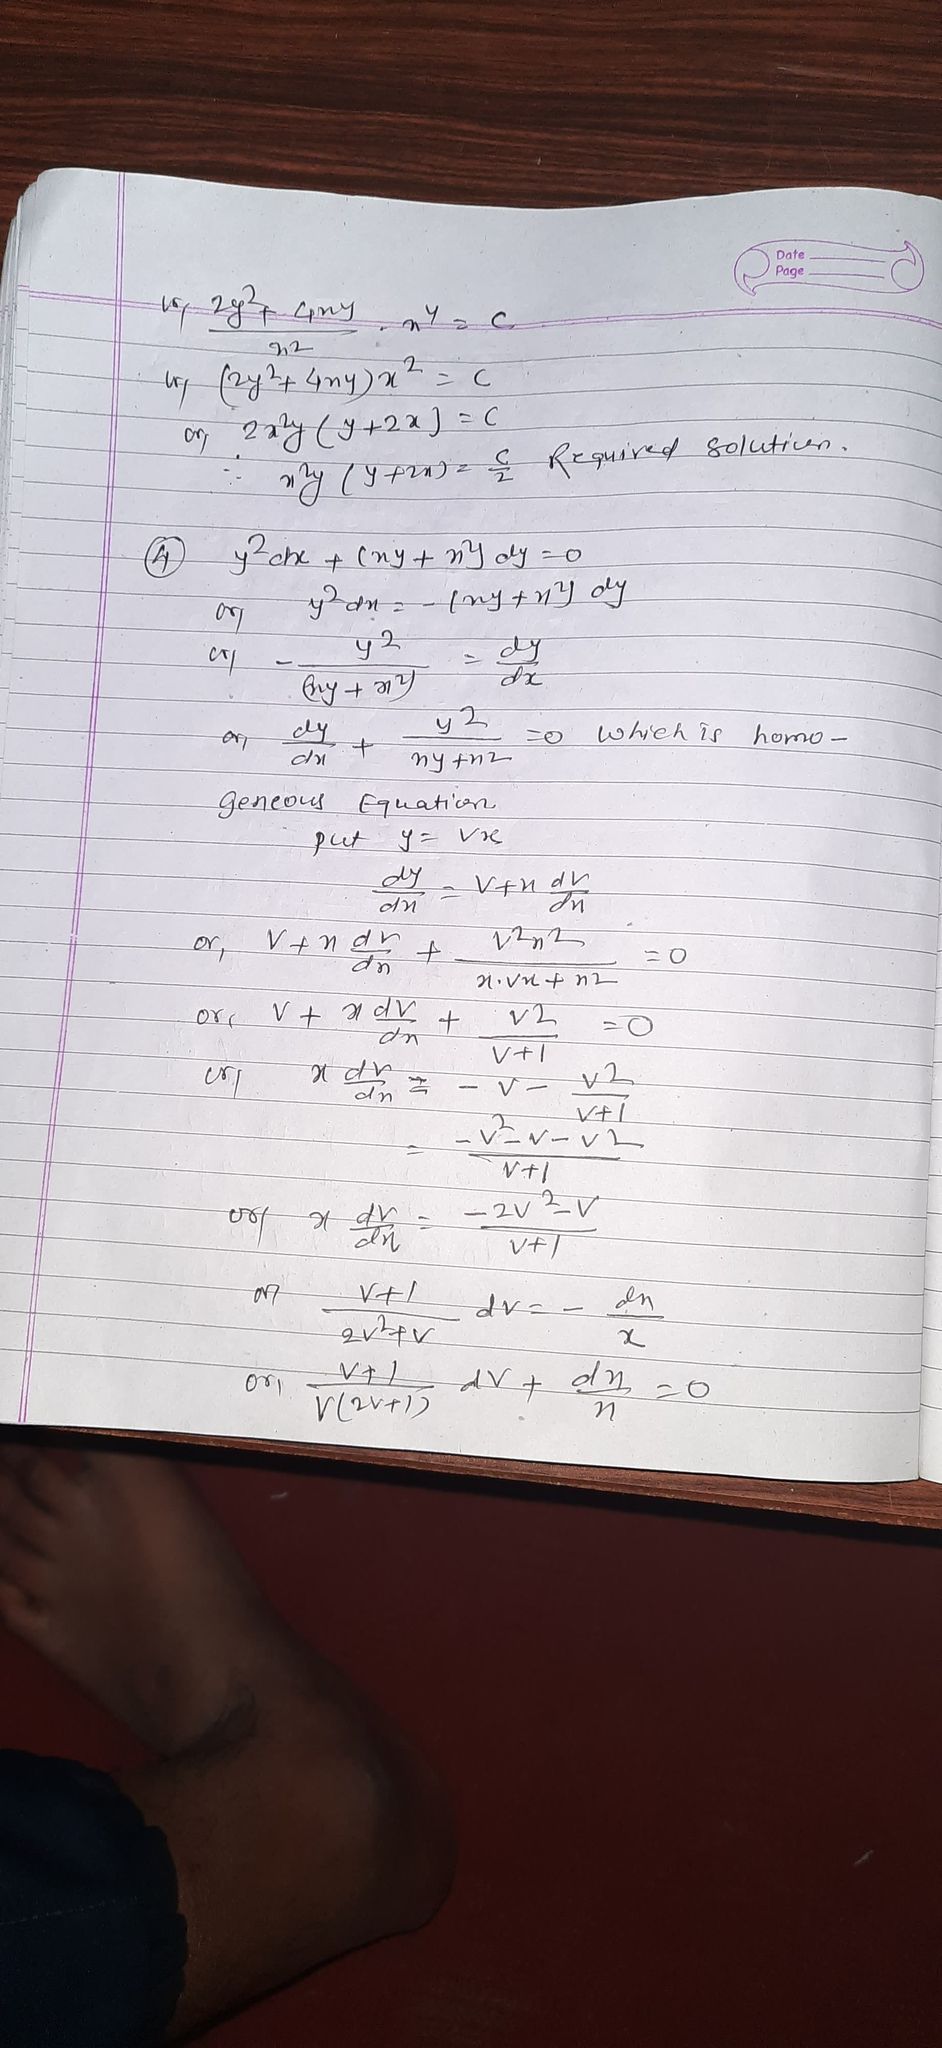 Date
Page
or, 2y²+4xy/x² · x⁴ = c
or, (2y²+4xy)x² = c
or, 2x²y(y+2x) = c
∴ x²y(y+2x) = c/2 Required solution.
④ y²dx + (xy+x²)dy = 0
or, y²dx = -(xy+x²)dy
or, - y²/(xy+x²) = dy/dx
or, dy/dx + y²/xy+x² = 0 which is homo-
geneous Equation
put y = vx
dy/dx = v+x dv/dx
or, v+x dv/dx + v²x²/x.vx+x² = 0
or, v + x dv/dx + v²/v+1 = 0
or, x dv/dx = -v - v²/v+1
= -v²-v-v²/v+1
or, x dv/dx = -2v²-v/v+1
or, v+1/2v²+v dv = - dx/x
or, v+1/v(2v+1) dv + dx/x = 0